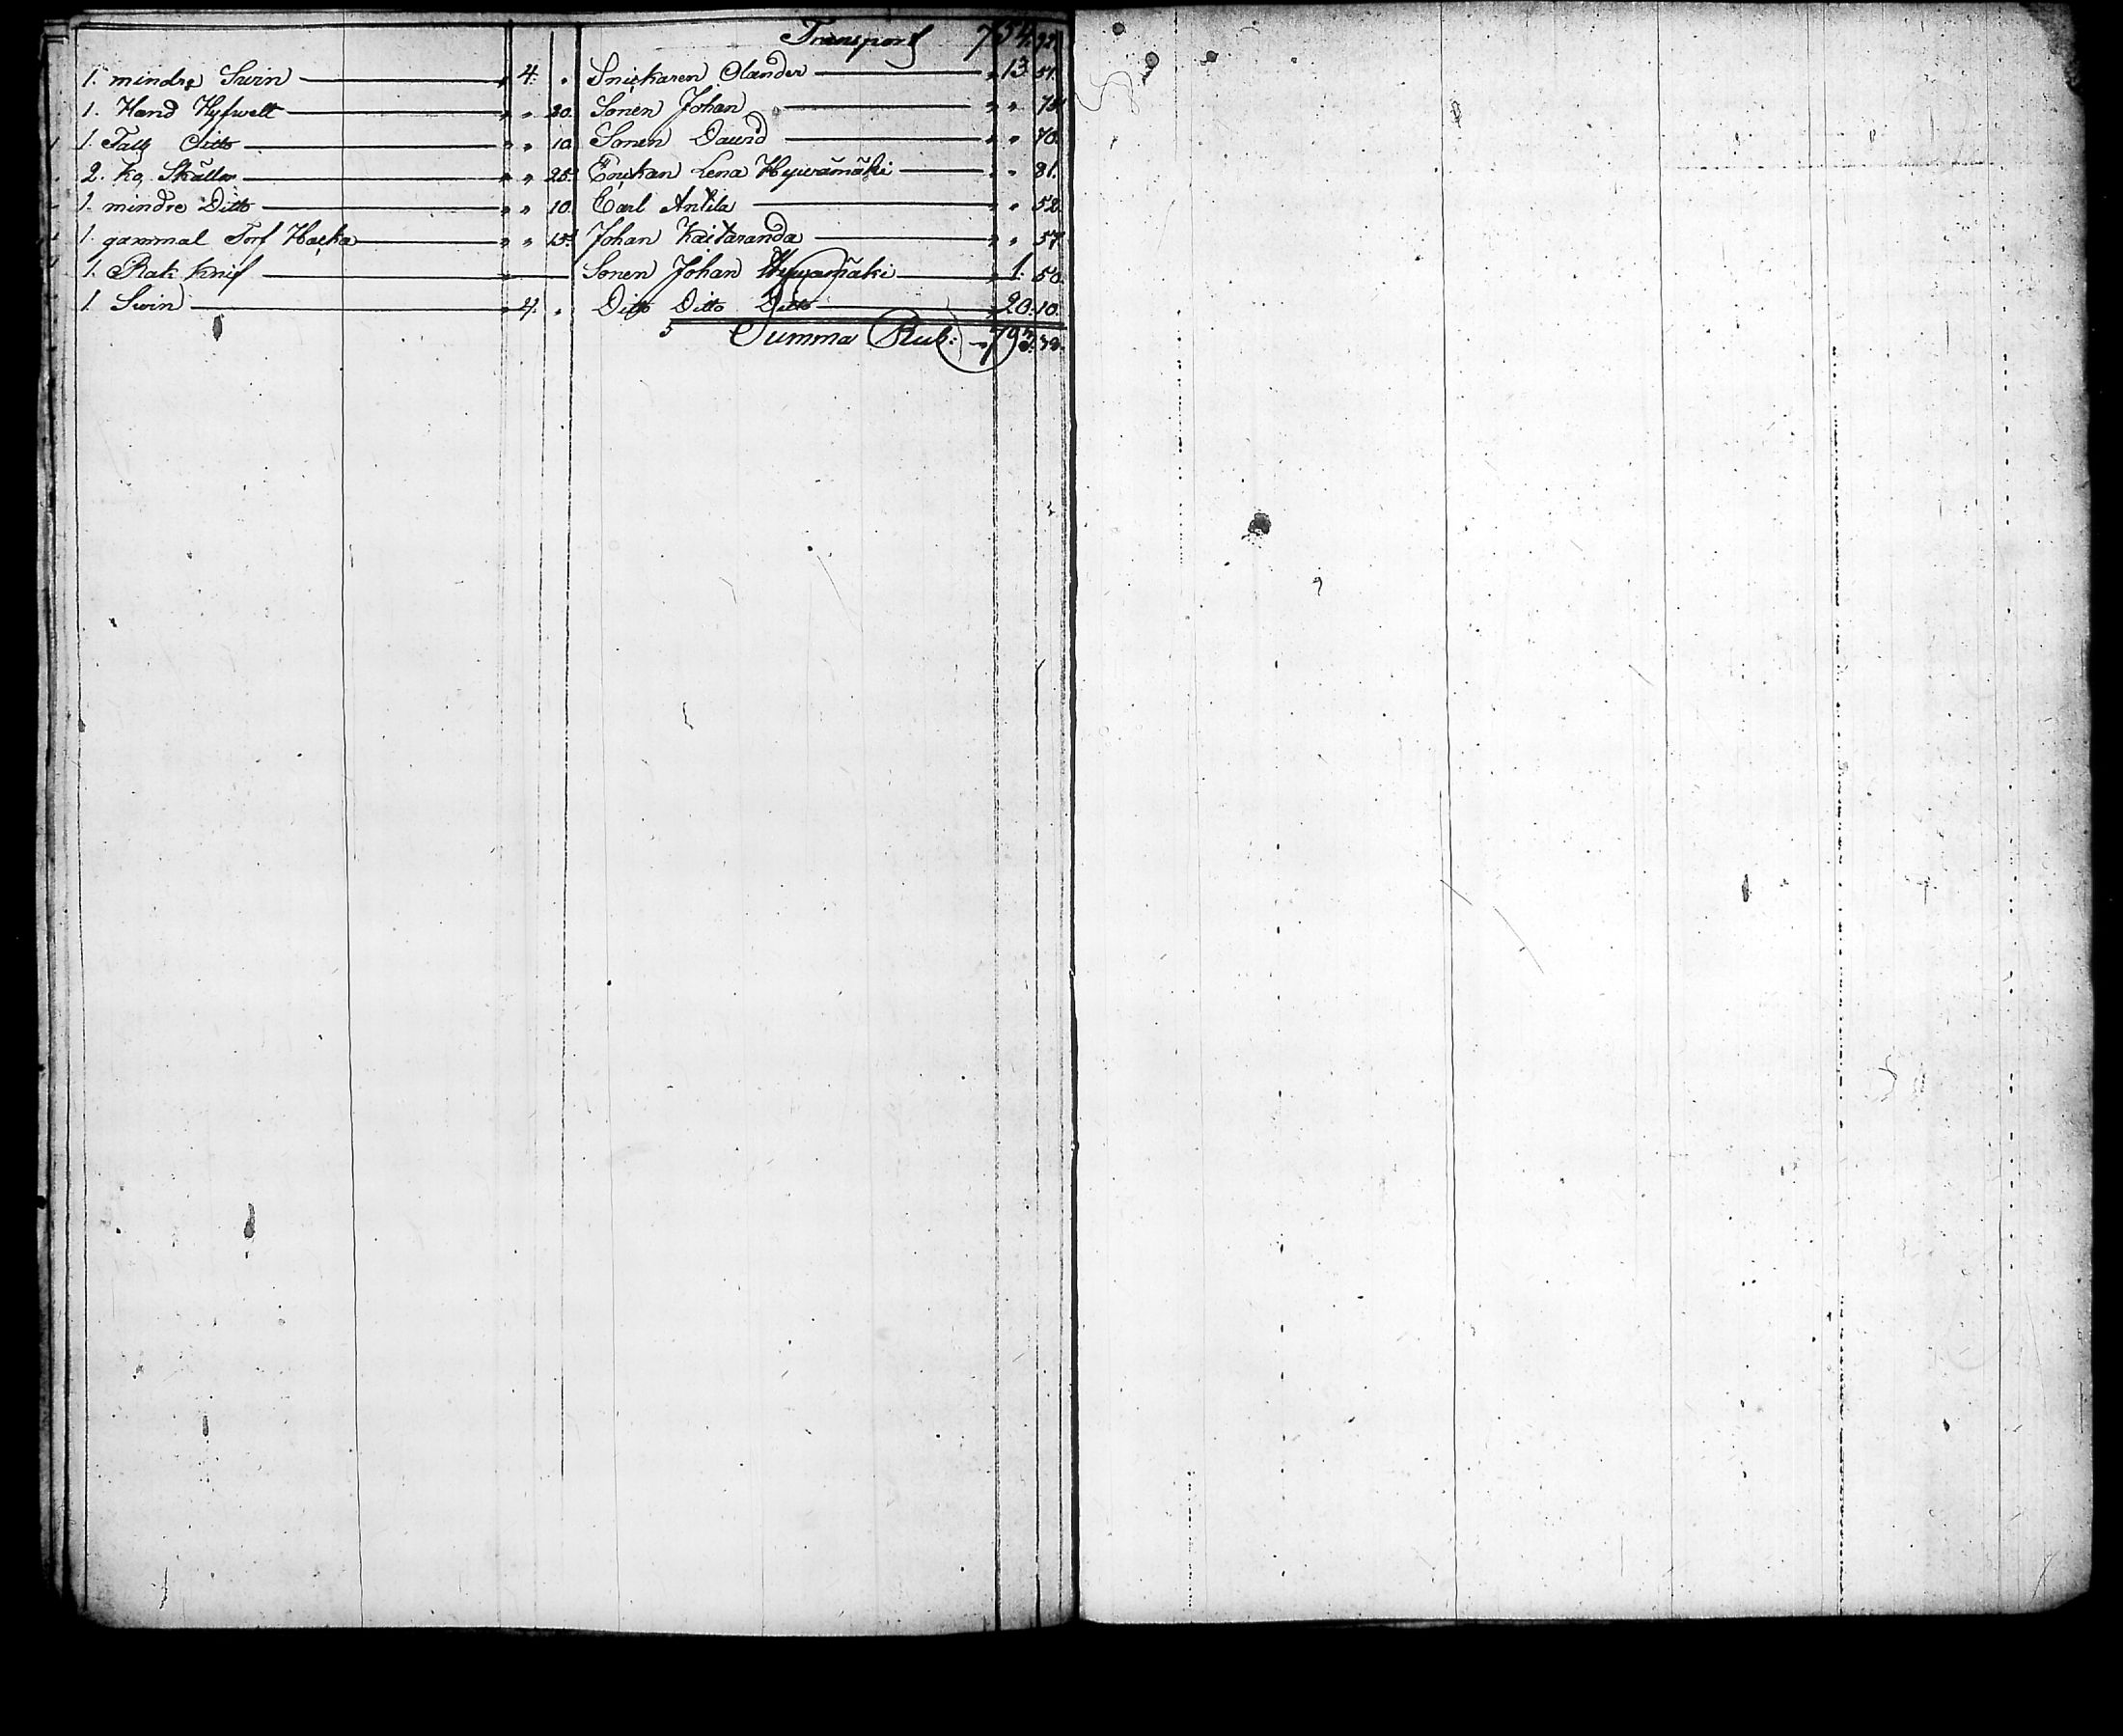 Transport 754. 92.
1. mindre Swin " 4. " Snickaren Olander " 13. 51.
1. Hand Hyfwell " " 20. Sonen Johan " " 75.
1. Ditto " " 10. Sonen David " " 70.
2. Skållor " " 25. Enckan Lena Hywämäki " " 81.
1. mindre Ditto " " 10. Carl Antila " " 52.
1. gammal Torf Hacka " " 15. Johan Kaitaranda " " 57.
1. Rak Knif Sonen Johan Hywämäki " 1. 50.
1. Swin " 4. " Ditto Ditto Ditto " 20. 10.
Summa Rub: